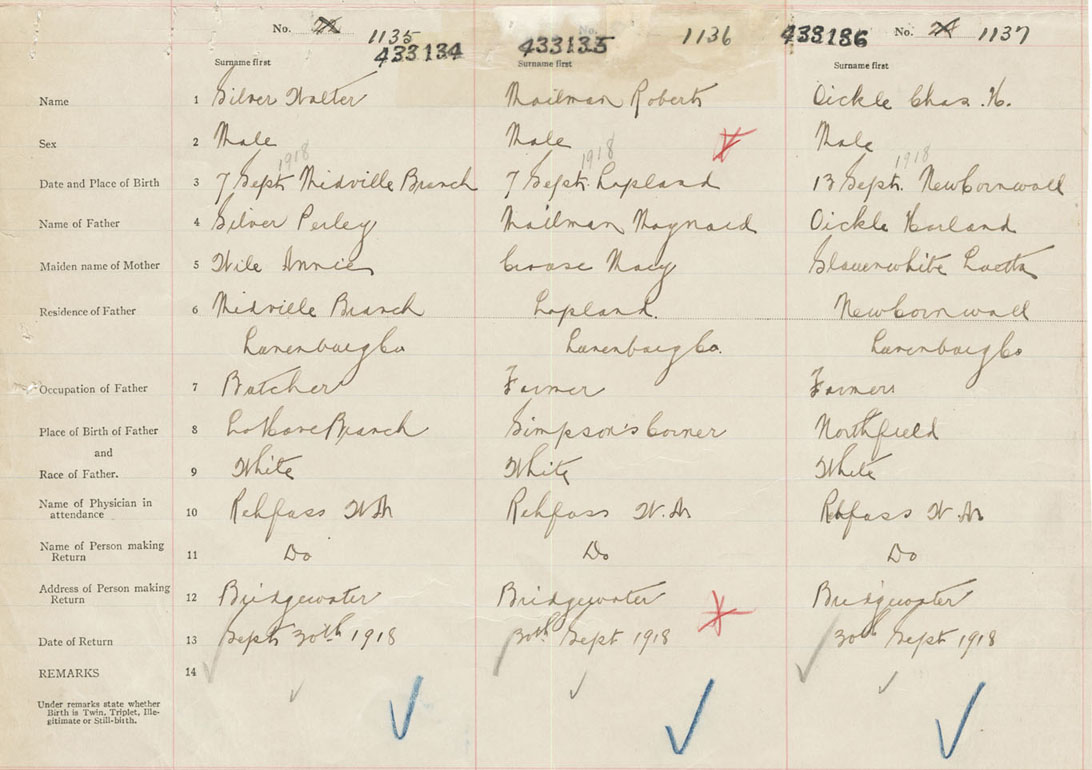 No. 1135 433134 No. 433135 1136 433136 No. 1137
Surname first Surname first Surname first
Name 1 Silver Walter Mailman Robert Oickle Chas. H.
Sex 2 Male Male Male
1918 1918 1918
Date and Place of Birth 3 7 Sept. Midville Branch 7 Sept. Lapland 13 Sept. New Cornwall
Name of Father 4 Silver Perley Mailman Maynard Oickle Harland
Maiden name of Mother 5 Wile Annie Crouse Macy Slauenwhite
Residence of Father 6 Midville Branch Lapland. New Cornwall
Lunenburg Co Lunenburg Co. Lunenburg Co
Occupation of Father 7 Butcher Farmer Farmer
Place of Birth of Father 8 LaHave Branch Simpson's Corner Northfield
and
Race of Father. 9 White White White
Name of Physician in
attendance 10 Rehfuss W. N. Rehfuss W. N. Rehfuss W. N.
Name of Person making
Return 11 Do Do Do
Address of Person making
Return 12 Bridgewater Bridgewater Bridgewater
Date of Return 13 Sept 30th 1918 30th Sept 1918 30th Sept 1918
REMARKS 14
Under remarks state whether
Birth is Twin, Triplet, Ille-
gitimate or Still-birth.